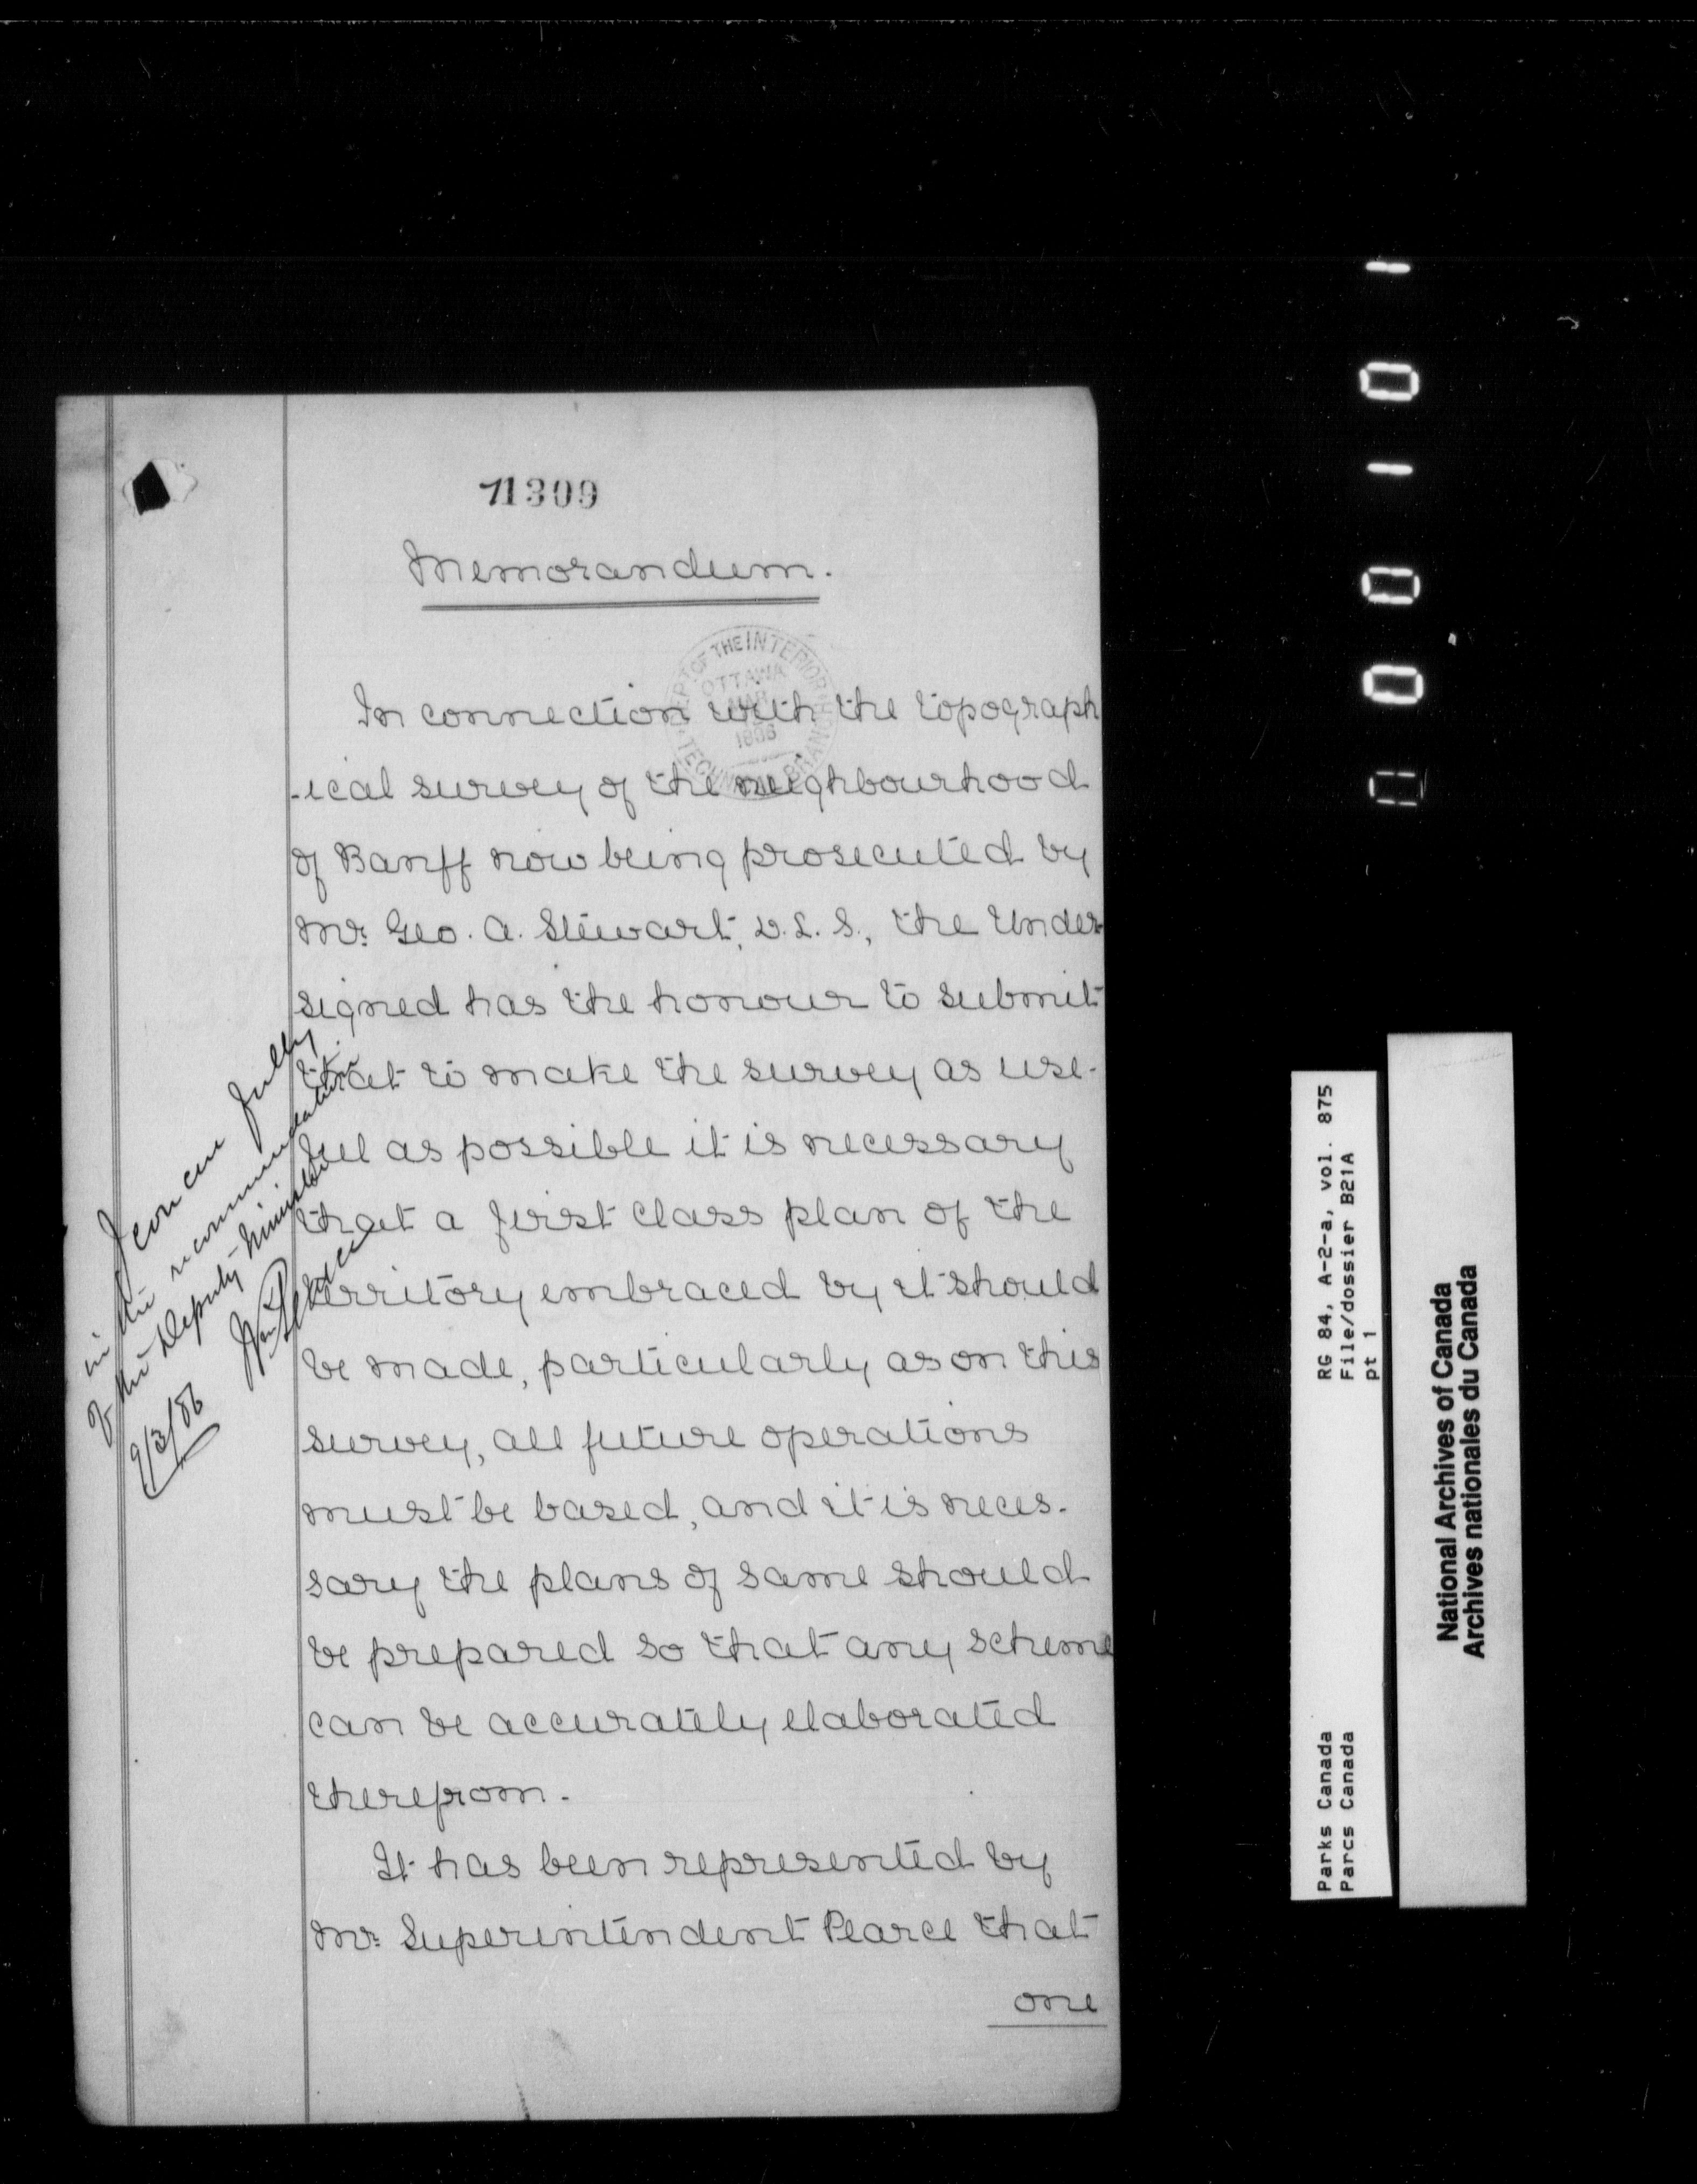 71309
Memorandum.
DEPT OF THE INTERIOR
OTTAWA
MAR
1886
TECHNICAL BRANCH
In connection with the topograph
-ical survey of the neighbourhood
of Banff now being prosecuted by
Mr. Geo. A. Stewart, D.L.S., the Under-
signed has the honour to submit
that to make the survey as use-
ful as possible it is necessary
that a first class plan of the
territory embraced by it should
be made, particularly as on this
survey, all future operations
must be based, and it is neces-
sary the plans of same should
be prepared so that any scheme
can be accurately elaborated
therefrom.
It has been represented by
Mr. Superintendent Pearce that
one
I concur fully
in the recommendation
of the Deputy Minister
Wm Pearce
9/3/86
-0-0000
Parks Canada
Parcs Canada
RG 84, A-2-a, vol. 875
File/dossier B21A
pt 1
National Archives of Canada
Archives nationales du Canada